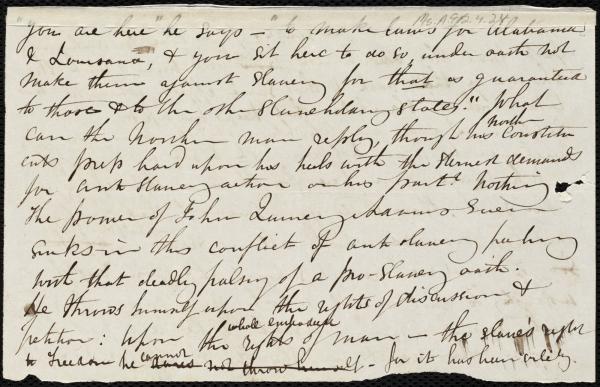 Ms. A.9.2.4.28
you are here" he says — "to make laws for Alabama
& Louisiana, & you sit here to do so, under oath not
make them against slavery for that is guaranteed
to those & to the other Slaveholding States." What
can the Northern man reply, though his North Constitu
ents press hard upon his heels with the sternest demands
for anti slavery action on his part? Nothing
The power of John Quincy Adams even
sinks in this conflict of anti slavery feeling
with that deadly palsy of a pro-slavery oath.
He throws himself upon the rights of discussion &
petition: upon the whole embodied rights of man — the slave's right
to freedom he cannot dares not throw himself — for it has been